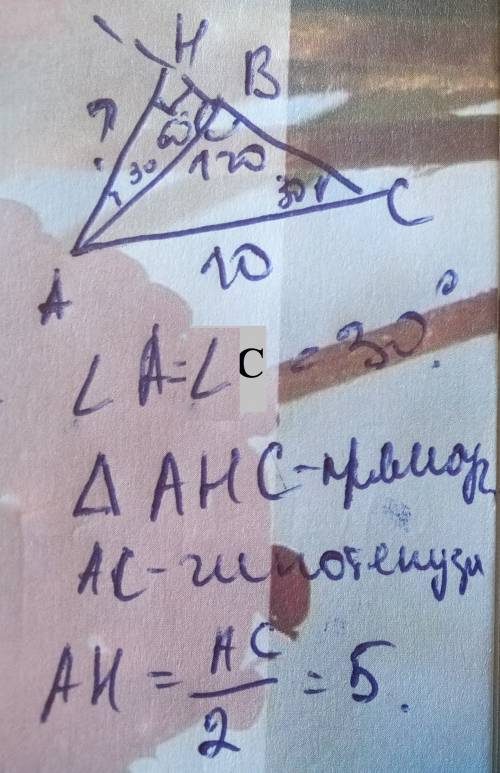 H
B
?
60°
30
120
30
C
10
A
∠ A = ∠ C = 30°.
Δ AHC - прямоуг,
AC - гипотенуза
AH = AC/2 = 5.